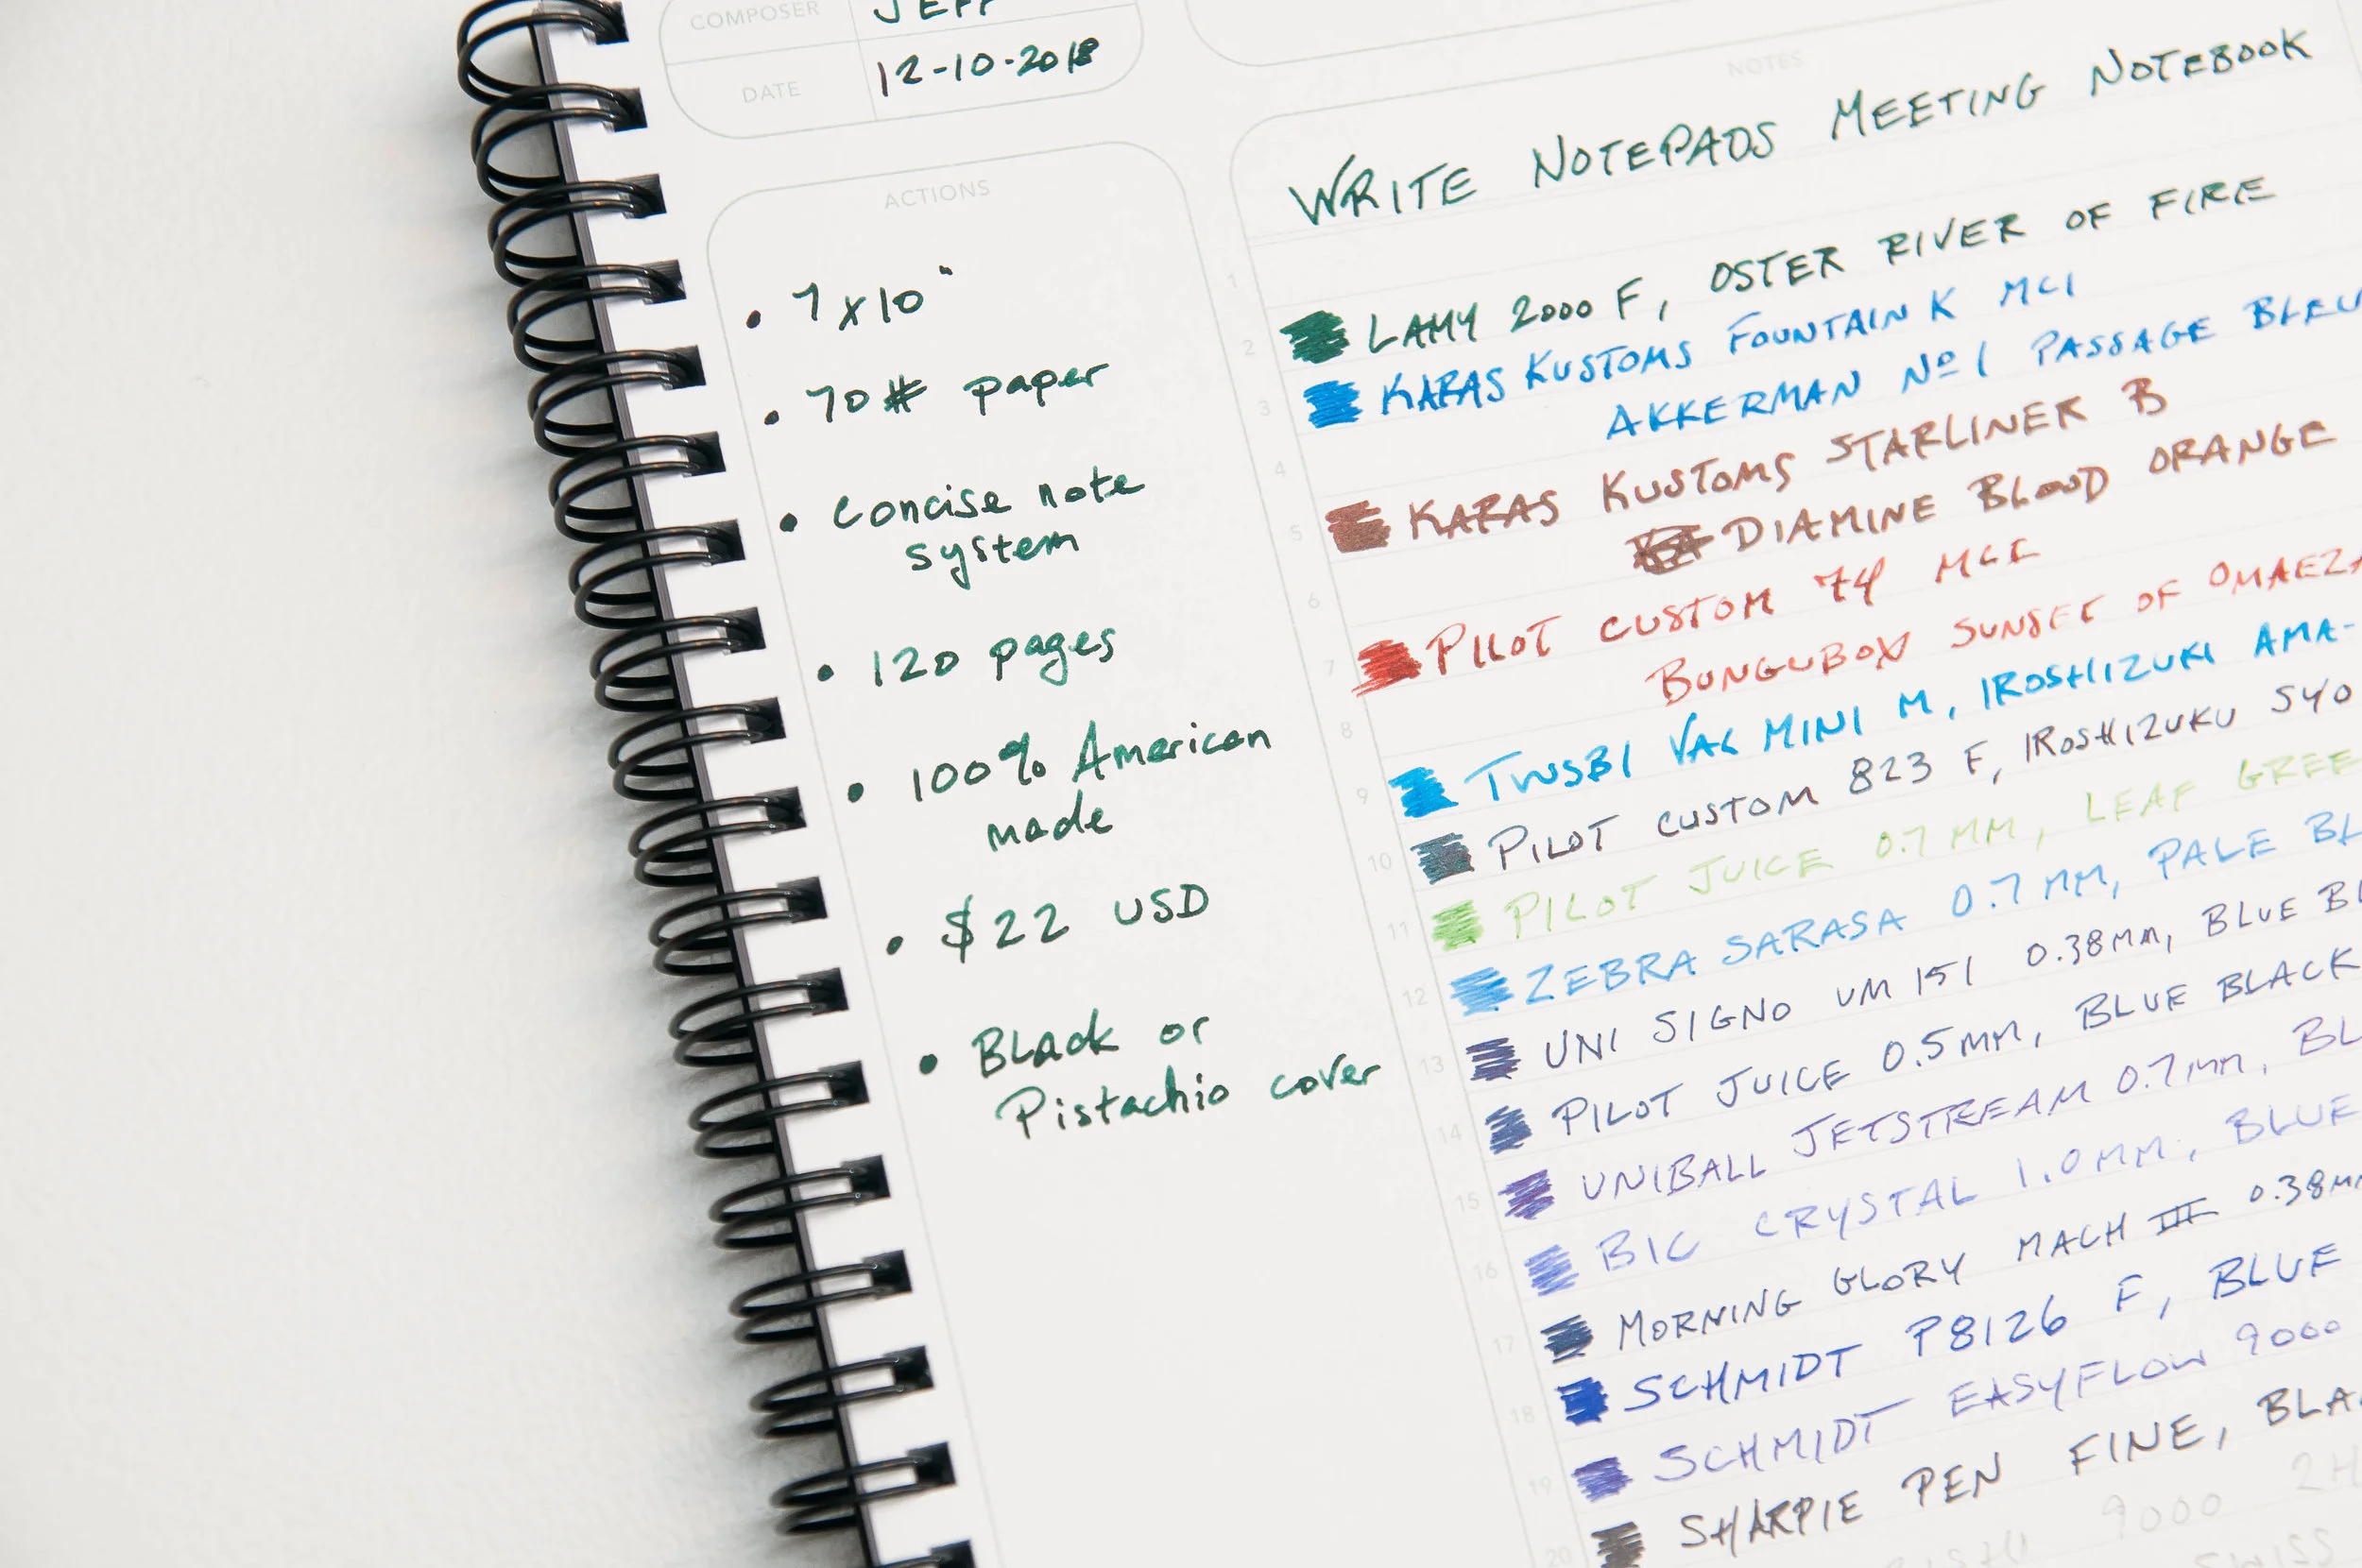 COMPOSER JEFF
DATE 12-10-2018
ACTIONS
• 7 x 10"
• 70# paper
• Concise note
system
• 120 pages
• 100% American
made
• $22 USD
• Black or
Pistachio cover
NOTES
WRITE NOTEPADS MEETING NOTEBOOK
1
2 LAMY 2000 F, OSTER RIVER OF FIRE
3 KARAS KUSTOMS FOUNTAIN K MCI
4 AKKERMAN Nº1 PASSAGE BLEU
5 KARAS KUSTOMS STARLINER B
6 DIAMINE BLOOD ORANGE
7 PILOT CUSTOM 74 MCI
8 BUNGUBOX SUNSET OF OMAEZA
9 TWSBI VAC MINI M, IROSHIZUKU AMA-
10 PILOT CUSTOM 823 F, IROSHIZUKU SYO
11 PILOT JUICE 0.7 MM, LEAF GREE
12 ZEBRA SARASA 0.7 MM, PALE BL
13 UNI SIGNO UM 151 0.38MM, BLUE BL
14 PILOT JUICE 0.5MM, BLUE BLACK
15 UNIBALL JETSTREAM 0.7MM, BL
16 BIC CRYSTAL 1.0MM, BLUE
17 MORNING GLORY MACH III 0.38MM
18 SCHMIDT P8126 F, BLUE
19 SCHMIDT EASYFLOW 9000
20 SHARPIE PEN FINE, BLA
9000 2H